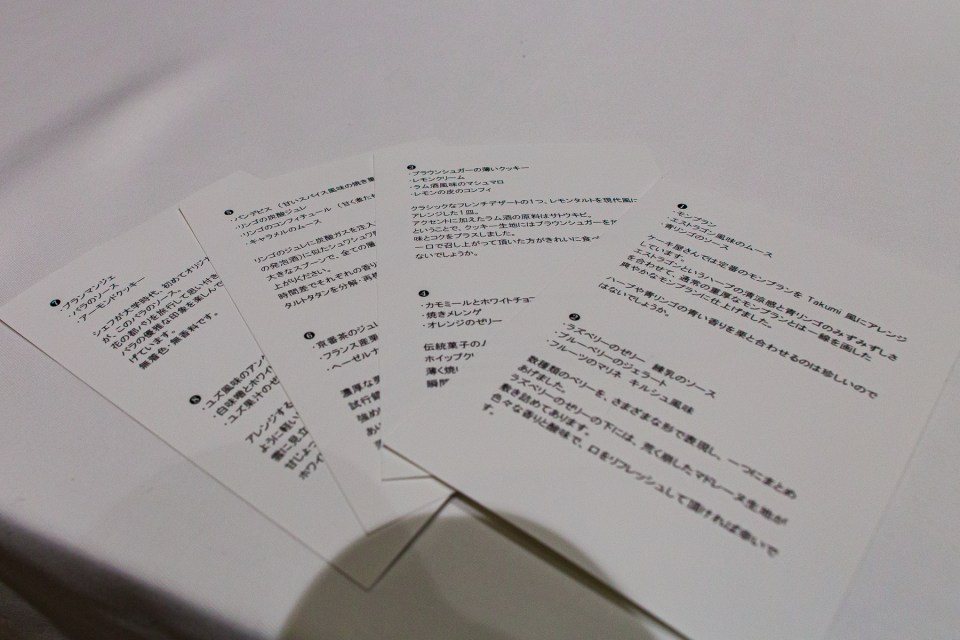 ❶
・モンブラン
・エストラゴン風味のムース
・青リンゴのソース
ケーキ屋さんでは定番のモンブランを Takumi 風にアレンジ
しています。
エストラゴンというハーブの清涼感と青リンゴのみずみずしさ
を合わせて、通常の重厚なモンブランとは一線を画した
爽やかなモンブランに仕上げました。
ハーブや青リンゴの青い香りを栗と合わせるのは珍しいので
はないでしょうか。
❷
・ラズベリーのゼリー 練乳のソース
・ブルーベリーのジェラート
・フルーツのマリネ キルシュ風味
数種類のベリーを、さまざまな形で表現し、一つにまとめ
あげました。
ラズベリーのゼリーの下には、荒く崩したマドレーヌ生地が
敷き詰めてあります。
色々な香りと酸味で、口をリフレッシュして頂ければ幸いで
す。
❸
・ブラウンシュガーの薄いクッキー
・レモンクリーム
・ラム酒風味のマシュマロ
・レモンの皮のコンフィ
クラシックなフレンチデザートの1つ、レモンタルトを現代風に
アレンジした1皿。
アクセントに加えたラム酒の原料はサトウキビ。
ということで、クッキー生地にはブラウンシュガーを
味とコクをプラスしました。
一口で召し上がって頂いた方がきれいに食べ
ないでしょうか。
❹
・カモミールとホワイトチョ
・焼きメレンゲ
・オレンジのゼリー
伝統菓子の
ホイップ
薄く焼
瞬間
❺
・パンデピス (甘いスパイス風味の焼き菓
・リンゴの炭酸ジュレ
・リンゴのコンフィチュール (甘く煮た
・キャラメルのムース
リンゴのジュレに炭酸ガスを注入
の発泡酒)に似たシュワシュワ
大きなスプーンで、全ての層
上がりください。
時間差でそれぞれの香り
タルトタタンを分解・再
❻
・京番茶のジュレ
・フランス産栗
・ヘーゼルナ
濃厚な
試行錯
強め
あ
❼
・ブランマンジェ
・バラのソース
・アーモンドクッキー
シェフが大学時代、初めてオリジナ
が、このバラのソース。
花の都パリを旅行して思い付き
バラの優雅な印象を楽しんで
げています。
無着色・無香料です。
❽
・ユズ風味のアン
・白味噌とホワイ
・ユズ果汁のゼ
アレンジする
ように軽い
雲に見立
甘じょっ
ホワイ